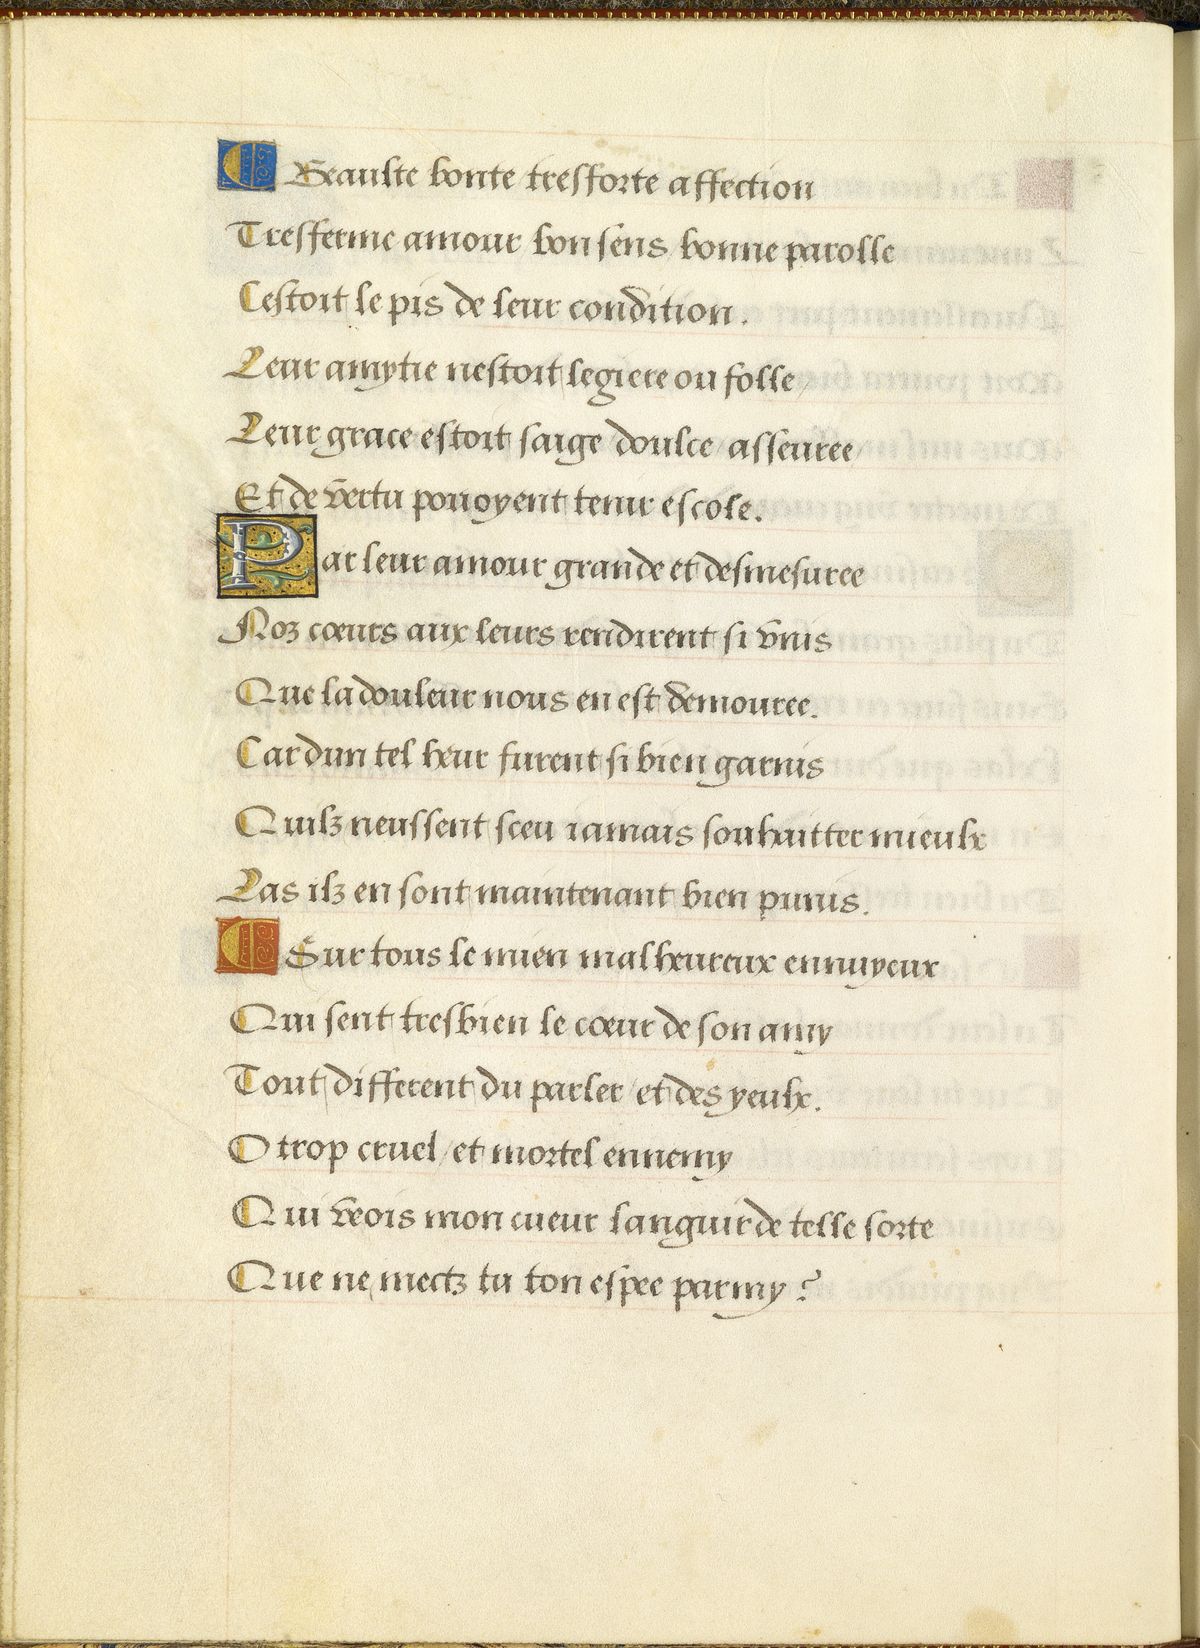 Beaulte bonte tresforte affection
Tresferme amour bon sens bonne parolle
Cestoit le pis de leur condition.
Leur amytie nestoit legiere ou folle
Leur grace estoit saige doulce asseuree
Et de vertu povoyent tenir escole.
Par leur amour grande et desmesuree
Noz cœurs aux leurs rendirent si vnis
Que la douleur nous en est demouree.
Car dun tel heur furent si bien garnis
Quilz neussent sceu iamais souhaitter mieulx
Las ilz en sont maintenant bien punis.
Sur tous le mien malheureux ennuyeux
Qui sent tresbien le cœur de son amy
Tout different du parler / et des yeulx.
O trop cruel / et mortel ennemy
Qui veois mon cueur languir de telle sorte
Que ne mectz tu ton espee parmy ?